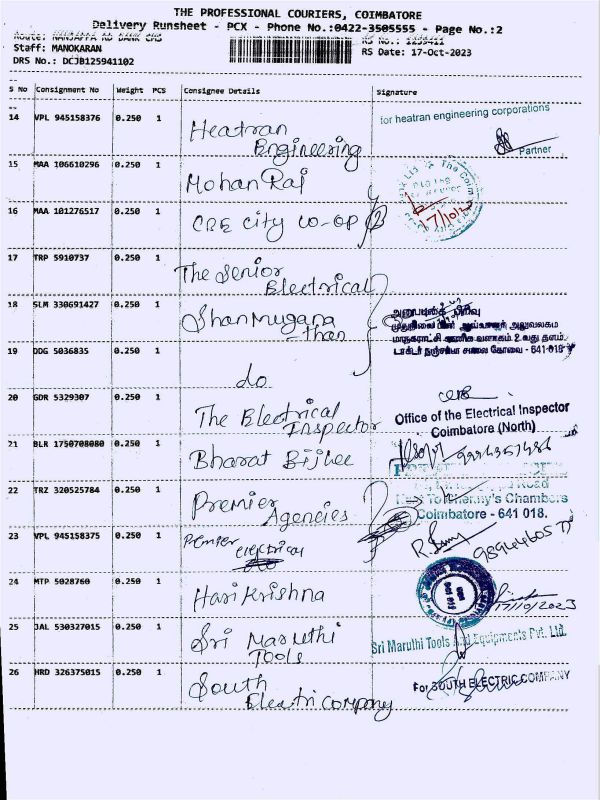 THE PROFESSIONAL COURIERS, COIMBATORE
Delivery Runsheet - PCX - Phone No.:0422-3505555 - Page No.:2
Route: NANJAPPA RD BANK CMS RS No.: 1259411
Staff: MANOKARAN RS Date: 17-Oct-2023
DRS No.: DCJB125941102
S No Consignment No Weight PCS Consignee Details Signature
14 VPL 945158376 0.250 1 Heatran Engineering for heatran engineering corporations
Partner
15 MAA 106610296 0.250 1 Mohan Raj
17/10/2
16 MAA 101276517 0.250 1 CRE City co-op
17 TRP 5910737 0.250 1 The Senior Electrical
18 SLM 330691427 0.250 1 Shanmugana -than
மாநகராட்சி வணிக வளாகம் 2 வது தளம்
19 DDG 5036835 0.250 1 do
டாக்டர் நஞ்சப்பா சாலை கோவை - 641 018
20 GDR 5329307 0.250 1 The Electrical Inspector
Office of the Electrical Inspector
Coimbatore (North)
21 BLR 1750708080 0.250 1 Bharat Bijlee
22 TRZ 320525784 0.250 1 Premier Agencies
Road
Chambers
Coimbatore - 641 018.
23 VPL 945158375 0.250 1 Premier electrical
24 MTP 5028760 0.250 1 Hari Krishna
17/10/2023
25 JAL 530327015 0.250 1 Sri Maruthi Tools
Sri Maruthi Tools and Equipments Pvt. Ltd.
26 HRD 326375015 0.250 1 South Electri Company
For SOUTH ELECTRIC COMPANY